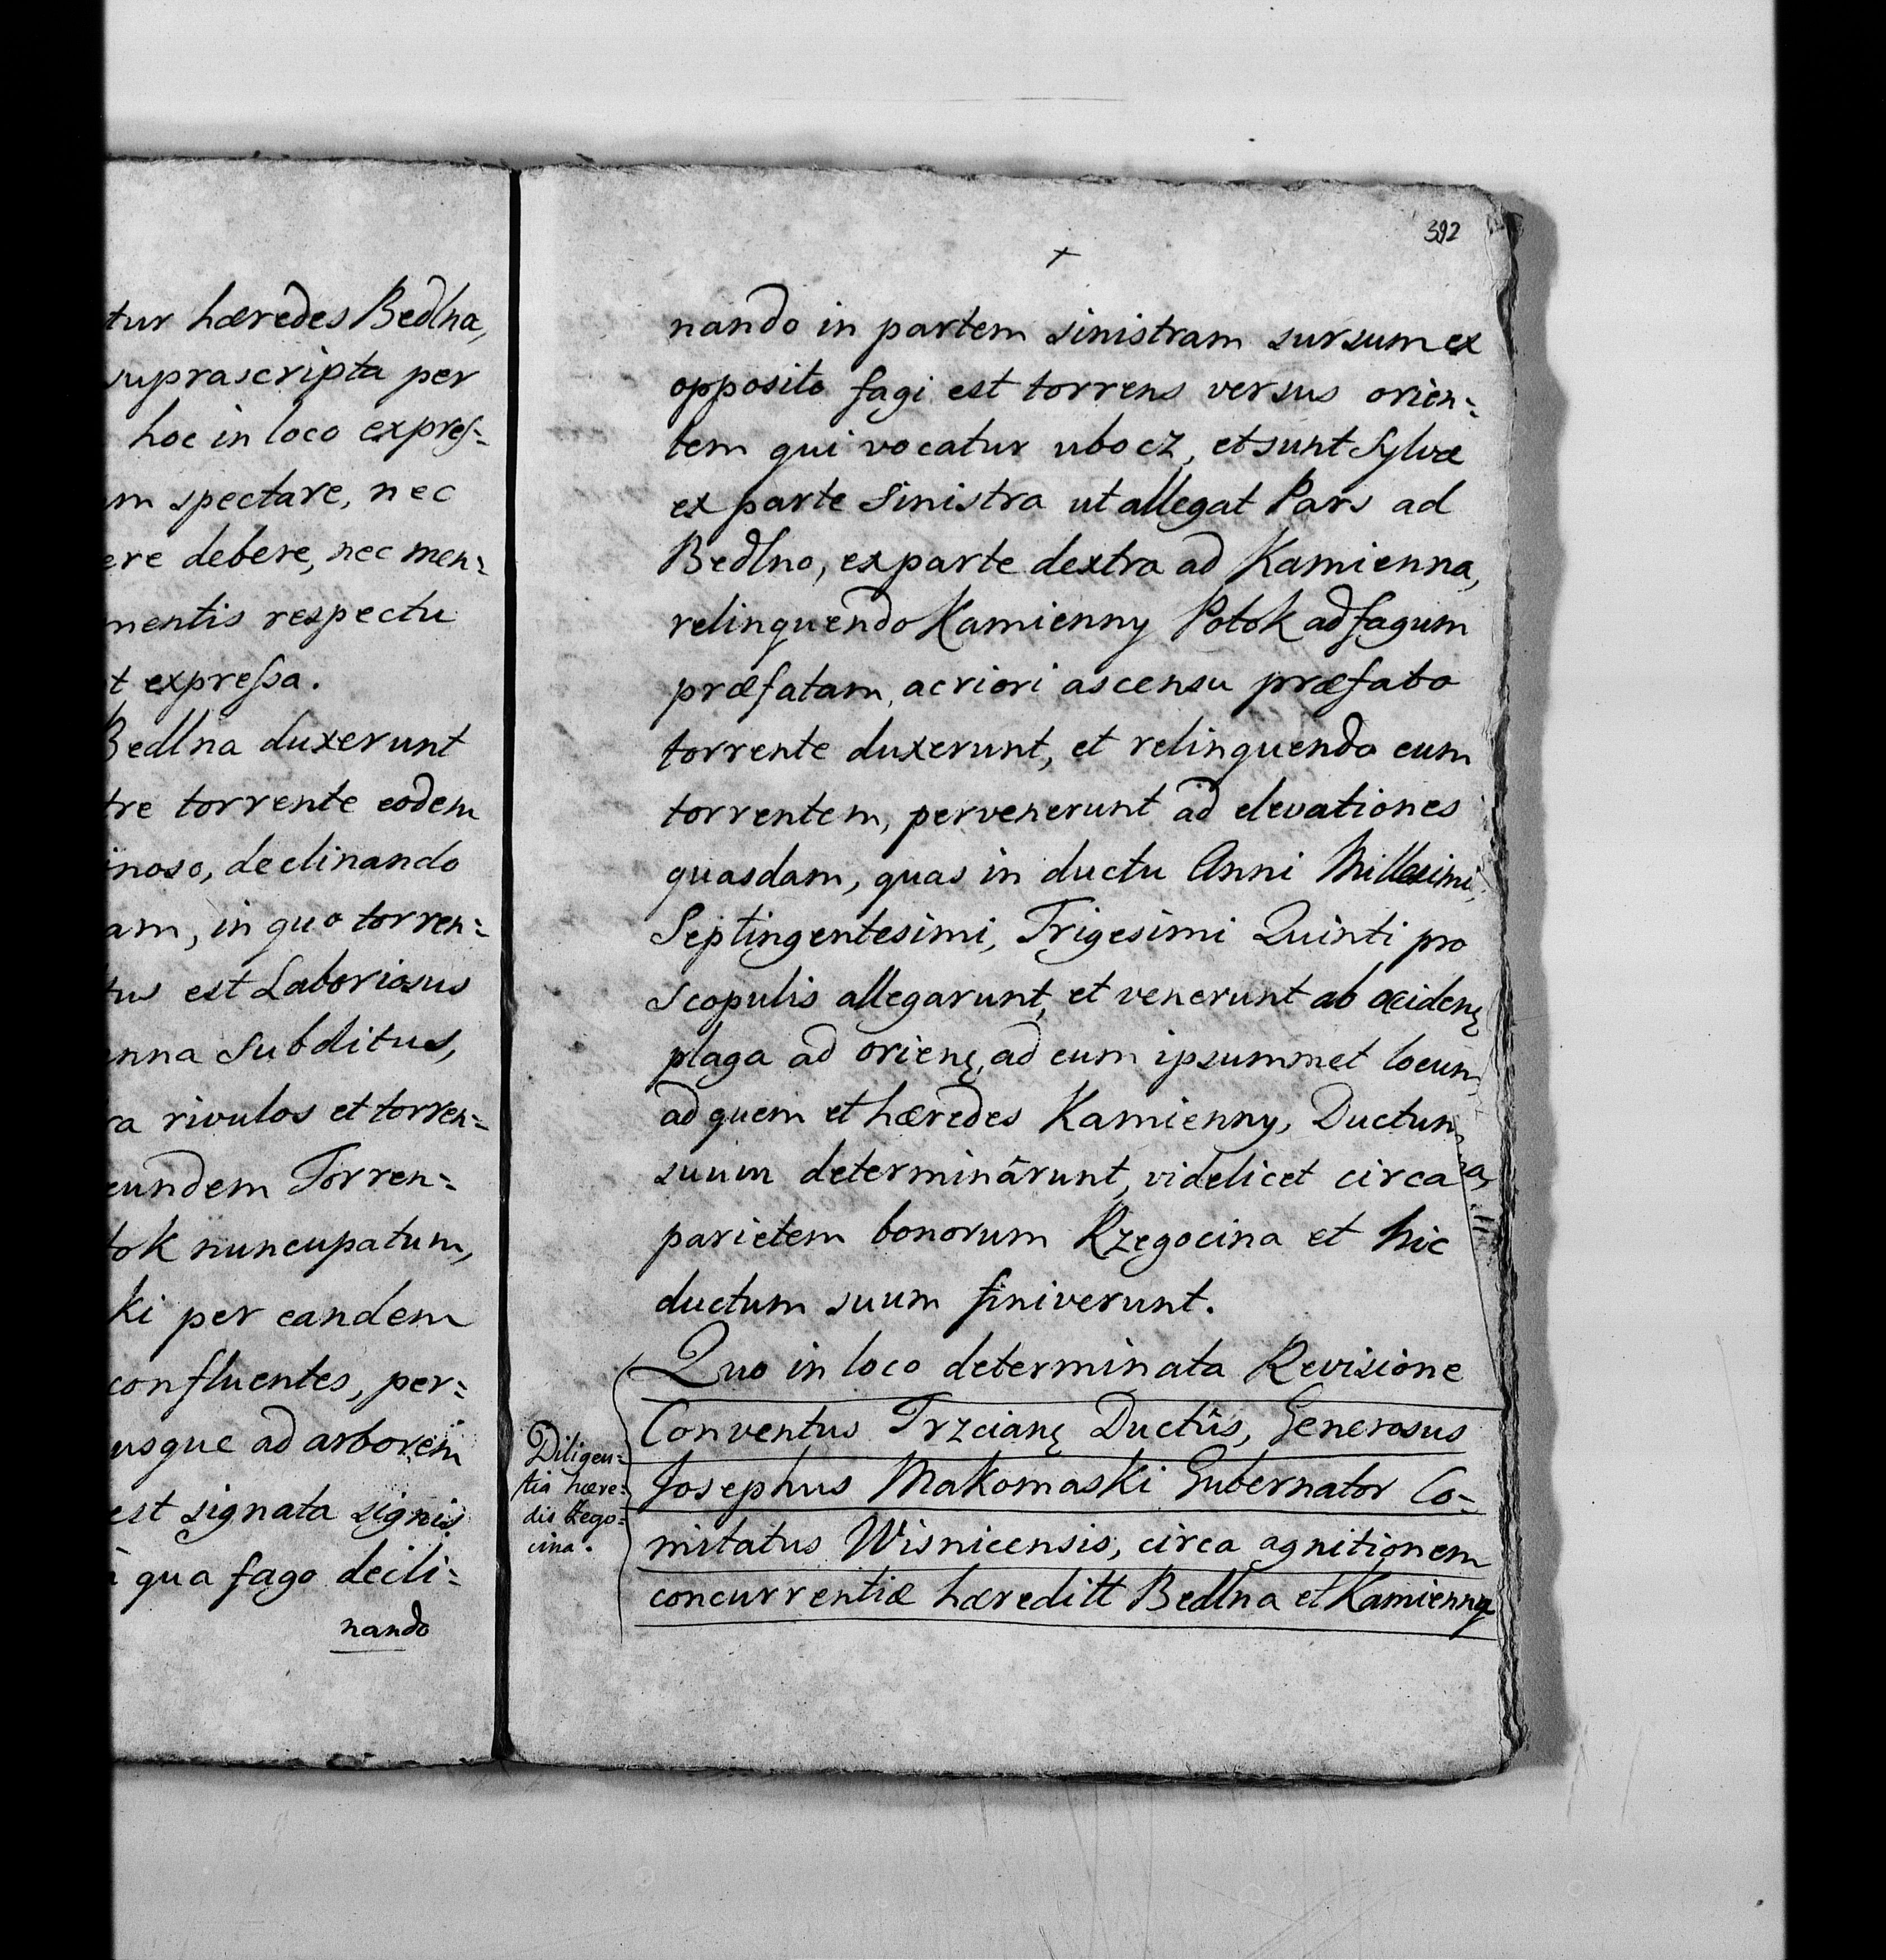 tur hæredes Bedlna,
suprascripta per
hoc in loco expres-
spectare, nec
debere, nec men:
respectu
expressa.
Bedlna duxerunt
torrente eodem
declinando
in quo torren:
est Laboriosus
Subditus,
rivulos et torren:
eundem Torren:
nuncupatum,
per eandem
confluentes, per:
usque ad arborem
est signata signis
qua fago decli:
nando
392
+
nando in partem sinistram sursum ex
opposito fagi est torrens versus orien:
tem qui vocatur ubocz, et sunt Sylvæ
ex parte Sinistra ut allegat Pars ad
Bedlno, ex parte dextra ad Kamienna,
relinquendo Kamienny Potok ad fagum
præfatam, acriori ascensu præfato
torrente duxerunt, et relinquendo eum
torrentem, pervenerunt ad elevationes
quasdam, quas in ductu Anni Millesimi,
Septingentesimi, Trigesimi Quinti pro
scopulis allegarunt, et venerunt ab occidenę
plaga ad orienę, ad eum ipsummet locum,
ad quem et hæredes Kamienny, Ductum
suum determinârunt, videlicet circa
parietem bonorum Rzęgocina et hic
ductum suum finiverunt.
Quo in loco determinata Revisione
Conventus Trzcianę Ductûs, Generosus
Josephus Makomaski Gubernator Co-
mitatus Wisnicensis, circa agnitionem
concurrentiæ hæreditt Bedlna et Kamienna
Diligen:
tia hære:
dis Rzego:
cina.